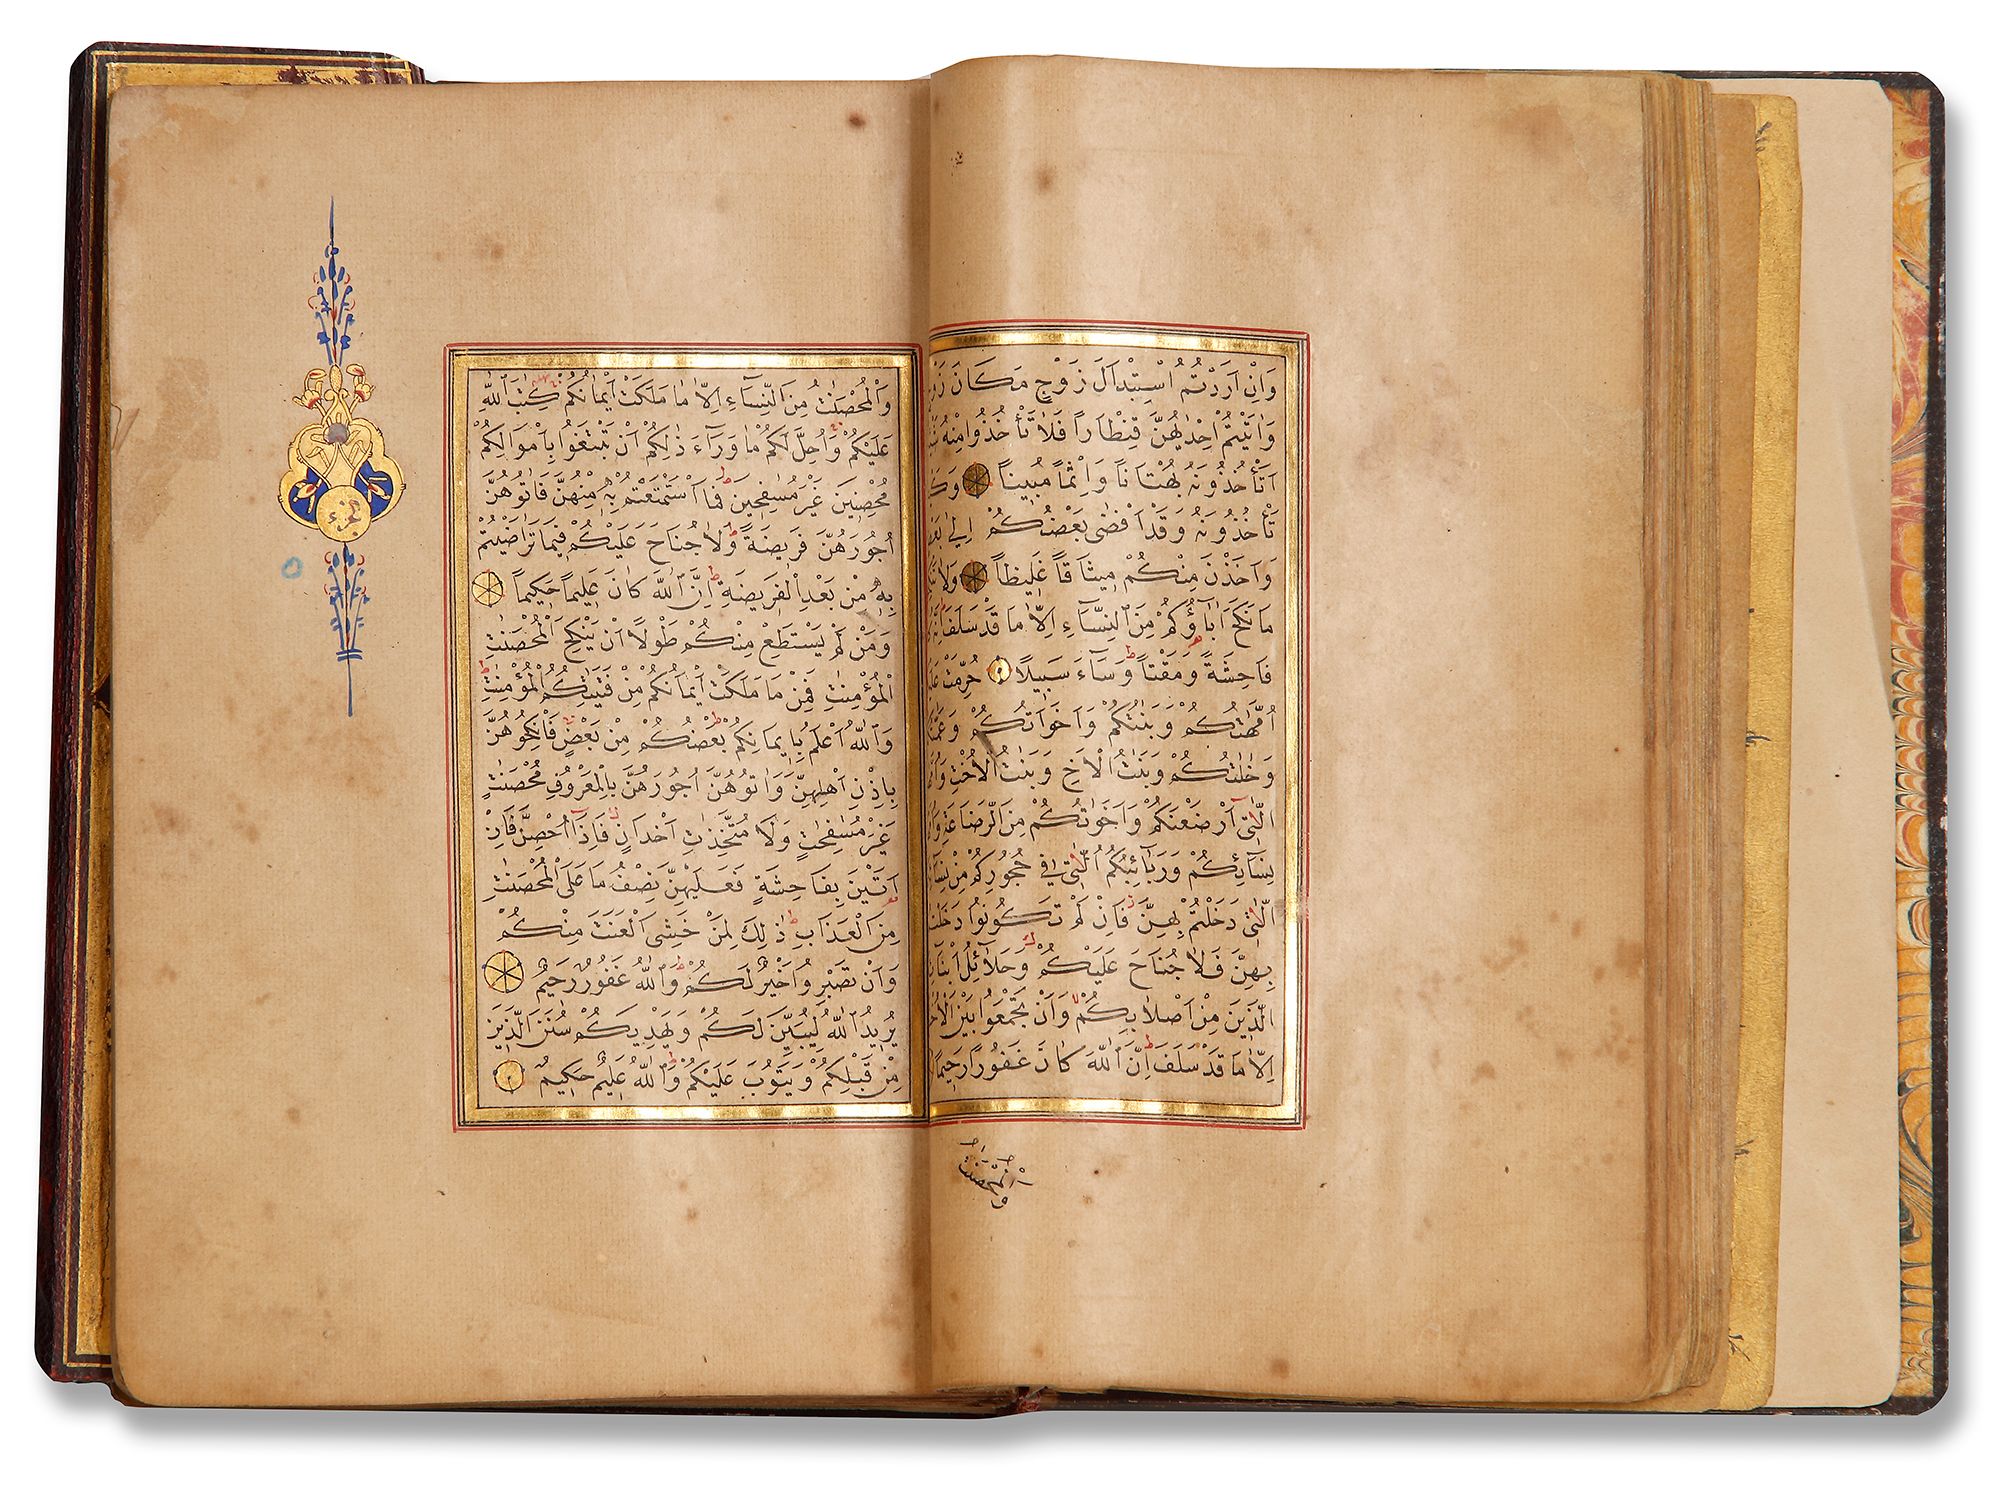 وَاِنْ اَرَدْتُمُ اسْتِبْدَالَ زَوْجٍ مَكَانَ زَوْجٍ
وَاٰتَيْتُمْ اِحْدٰيهُنَّ قِنْطَاراً فَلَا تَأْخُذُوا مِنْهُ
اَتَأْخُذُونَهُ بُهْتَاناً وَاِثْماً مُبِيناً
تَأْخُذُونَهُ وَقَدْ اَفْضٰى بَعْضُكُمْ اِلٰى بَعْضٍ
وَاَخَذْنَ مِنْكُمْ مِيثَاقاً غَلِيظاً وَلَا
مَا نَكَحَ اٰبَاؤُكُمْ مِنَ النِّسَاءِ اِلَّا مَا قَدْ سَلَفَ
فَاحِشَةً وَمَقْتاً وَسَاءَ سَبِيلاً حُرِّمَتْ
اُمَّهَاتُكُمْ وَبَنَاتُكُمْ وَاَخَوَاتُكُمْ
وَخَالَاتُكُمْ وَبَنَاتُ الْاَخِ وَبَنَاتُ الْاُخْتِ
اللَّاتِى اَرْضَعْنَكُمْ وَاَخَوَاتُكُمْ مِنَ الرَّضَاعَةِ
نِسَائِكُمْ وَرَبَائِبُكُمُ اللَّاتِى فِى حُجُورِكُمْ مِنْ
اللَّاتِى دَخَلْتُمْ بِهِنَّ فَاِنْ لَمْ تَكُونُوا
بِهِنَّ فَلَا جُنَاحَ عَلَيْكُمْ وَحَلَائِلُ
الَّذِينَ مِنْ اَصْلَابِكُمْ وَاَنْ تَجْمَعُوا بَيْنَ
اِلَّا مَا قَدْ سَلَفَ اِنَّ اللّٰهَ كَانَ غَفُوراً رَحِيماً
وَالْمُحْصَنٰتُ
وَالْمُحْصَنٰتُ مِنَ النِّسَاءِ اِلَّا مَا مَلَكَتْ اَيْمَانُكُمْ كِتَابَ اللّٰهِ
عَلَيْكُمْ وَاُحِلَّ لَكُمْ مَا وَرَاءَ ذٰلِكُمْ اَنْ تَبْتَغُوا بِاَمْوَالِكُمْ
مُحْصِنِينَ غَيْرَ مُسَافِحِينَ فَمَا اسْتَمْتَعْتُمْ بِهِ مِنْهُنَّ فَاٰتُوهُنَّ
اُجُورَهُنَّ فَرِيضَةً وَلَا جُنَاحَ عَلَيْكُمْ فِيمَا تَرَاضَيْتُمْ
بِهِ مِنْ بَعْدِ الْفَرِيضَةِ اِنَّ اللّٰهَ كَانَ عَلِيماً حَكِيماً
وَمَنْ لَمْ يَسْتَطِعْ مِنْكُمْ طَوْلاً اَنْ يَنْكِحَ الْمُحْصَنٰتِ
الْمُؤْمِنٰتِ فَمِنْ مَا مَلَكَتْ اَيْمَانُكُمْ مِنْ فَتَيَاتِكُمُ الْمُؤْمِنٰتِ
وَاللّٰهُ اَعْلَمُ بِاِيمَانِكُمْ بَعْضُكُمْ مِنْ بَعْضٍ فَانْكِحُوهُنَّ
بِاِذْنِ اَهْلِهِنَّ وَاٰتُوهُنَّ اُجُورَهُنَّ بِالْمَعْرُوفِ مُحْصَنٰتٍ
غَيْرَ مُسَافِحَاتٍ وَلَا مُتَّخِذَاتِ اَخْدَانٍ فَاِذَا اُحْصِنَّ فَاِنْ
اَتَيْنَ بِفَاحِشَةٍ فَعَلَيْهِنَّ نِصْفُ مَا عَلَى الْمُحْصَنٰتِ
مِنَ الْعَذَابِ ذٰلِكَ لِمَنْ خَشِىَ الْعَنَتَ مِنْكُمْ
وَاَنْ تَصْبِرُوا خَيْرٌ لَكُمْ وَاللّٰهُ غَفُورٌ رَحِيمٌ
يُرِيدُ اللّٰهُ لِيُبَيِّنَ لَكُمْ وَيَهْدِيَكُمْ سُنَنَ الَّذِينَ
مِنْ قَبْلِكُمْ وَيَتُوبَ عَلَيْكُمْ وَاللّٰهُ عَلِيمٌ حَكِيمٌ